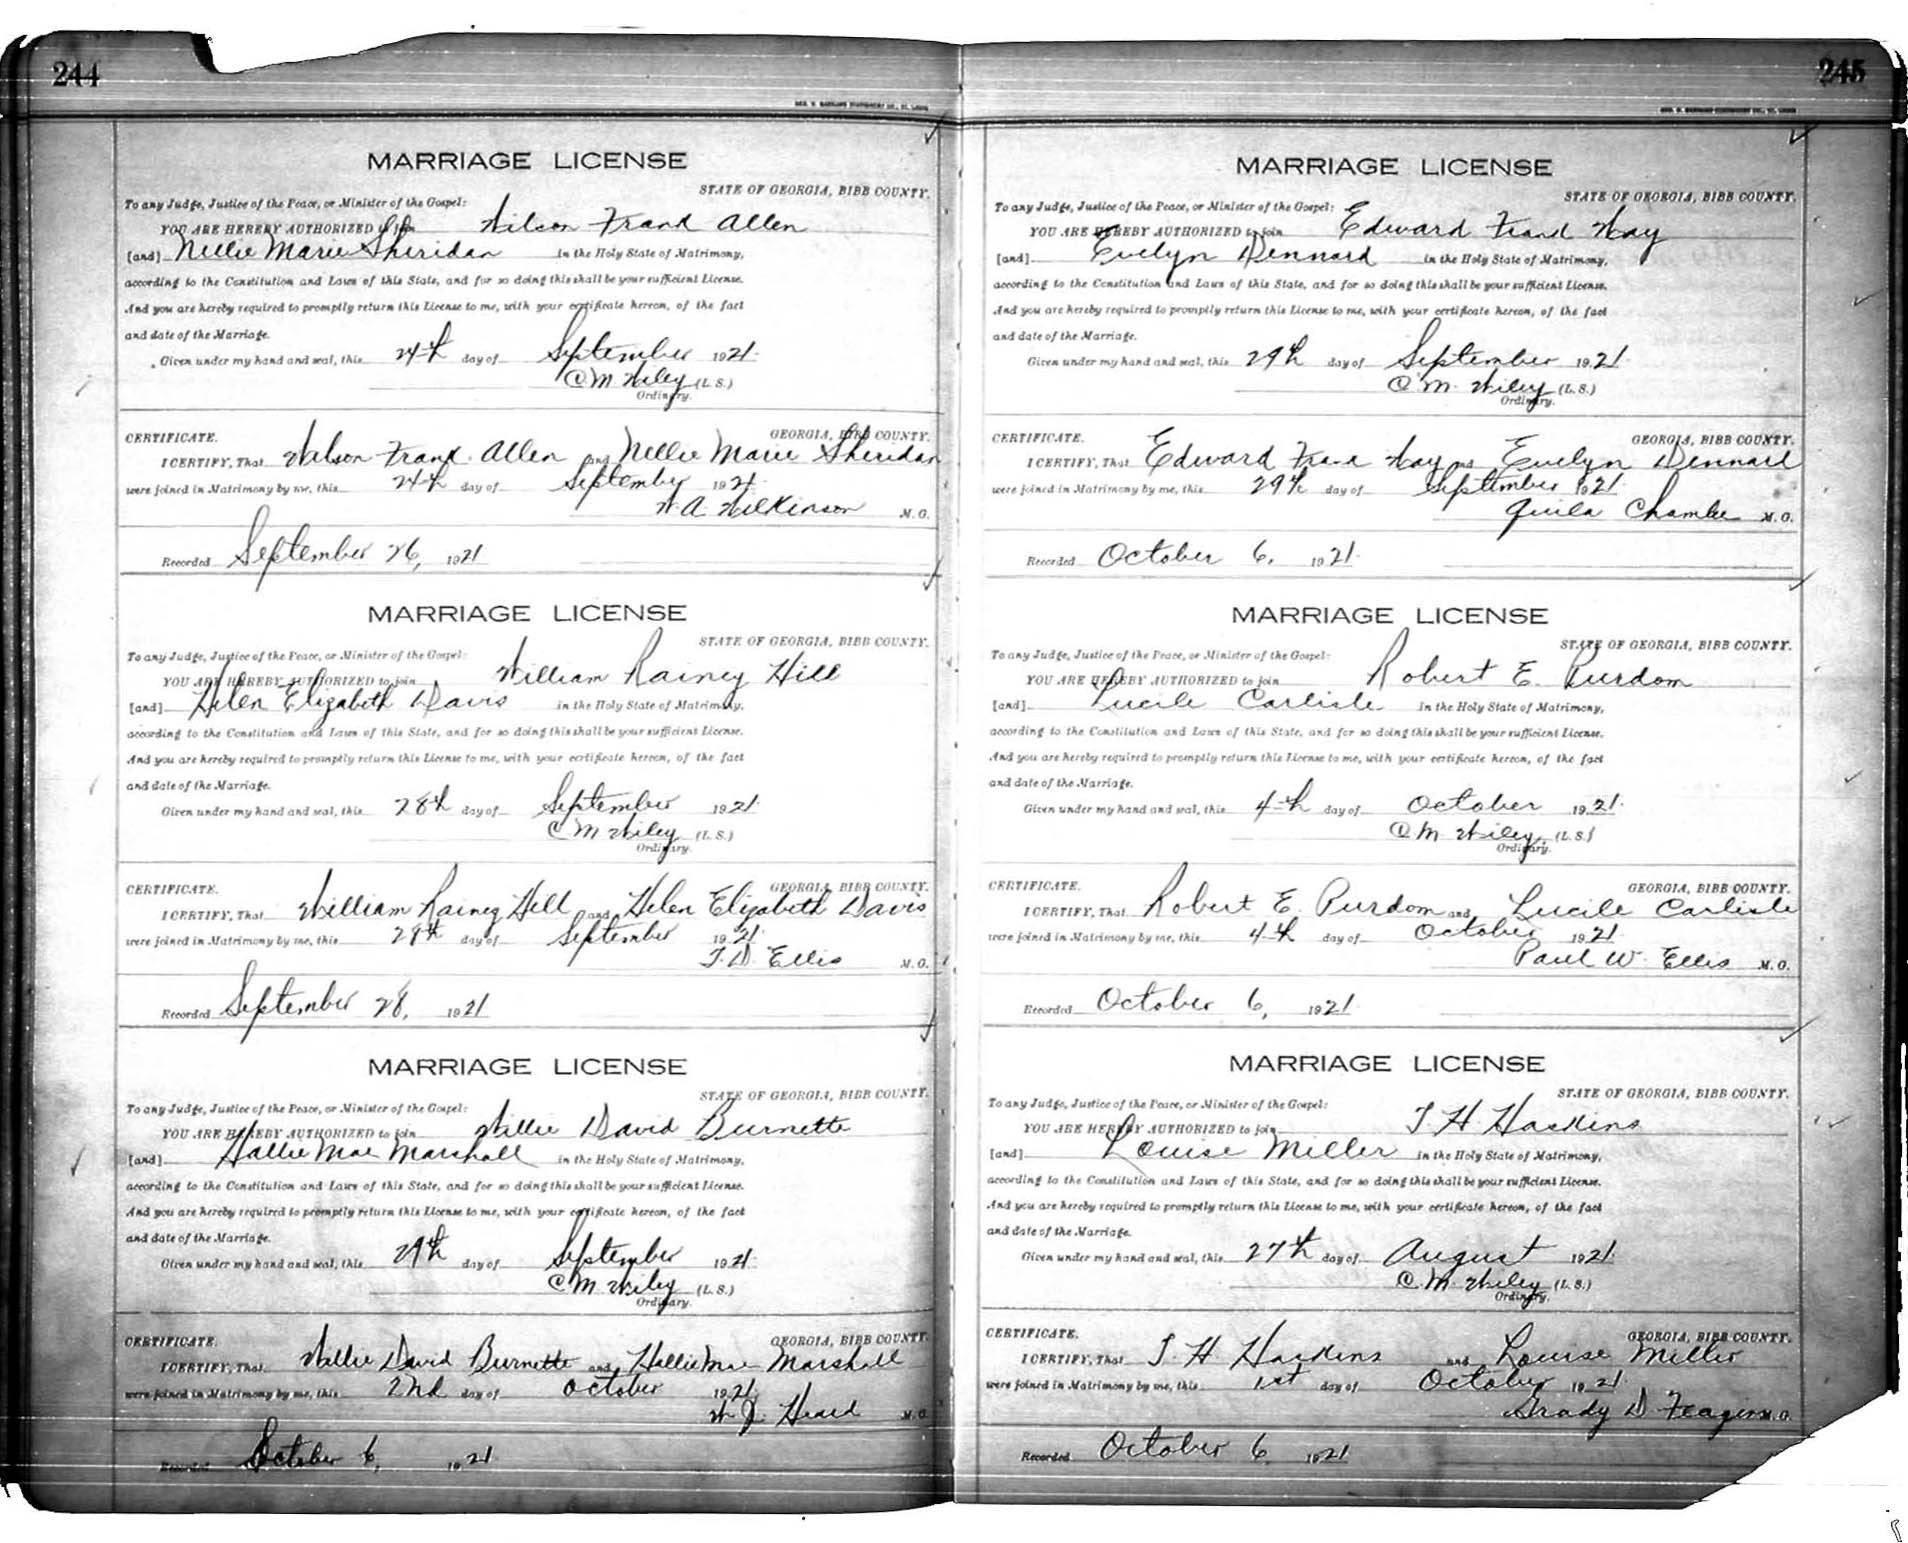 244
MARRIAGE LICENSE
STATE OF GEORGIA, BIBB COUNTY.
To any Judge, Justice of the Peace, or Minister of the Gospel:
YOU ARE HEREBY AUTHORIZED to join Wilson Frank Allen
[and] Nellie Marie Sheridan in the Holy State of Matrimony,
according to the Constitution and Laws of this State, and for so doing this shall be your sufficient License.
And you are hereby required to promptly return this License to me, with your certificate hereon, of the fact
and date of the Marriage.
Given under my hand and seal, this 24th day of September 1921.
C M Wiley (L.S.)
Ordinary.
CERTIFICATE. GEORGIA, BIBB COUNTY.
I CERTIFY, That Wilson Frank Allen and Nellie Marie Sheridan
were joined in Matrimony by me, this 24th day of September 1921.
W. A. Wilkinson M.G.
Recorded September 26, 1921
MARRIAGE LICENSE
STATE OF GEORGIA, BIBB COUNTY.
To any Judge, Justice of the Peace, or Minister of the Gospel:
YOU ARE HEREBY AUTHORIZED to join William Rainey Hill
[and] Helen Elizabeth Davis in the Holy State of Matrimony,
according to the Constitution and Laws of this State, and for so doing this shall be your sufficient License.
And you are hereby required to promptly return this License to me, with your certificate hereon, of the fact
and date of the Marriage.
Given under my hand and seal, this 28th day of September 1921.
C M Wiley (L.S.)
Ordinary.
CERTIFICATE. GEORGIA, BIBB COUNTY.
I CERTIFY, That William Rainey Hill and Helen Elizabeth Davis
were joined in Matrimony by me, this 28th day of September 1921.
T. D. Ellis M.G.
Recorded September 28, 1921
MARRIAGE LICENSE
STATE OF GEORGIA, BIBB COUNTY.
To any Judge, Justice of the Peace, or Minister of the Gospel:
YOU ARE HEREBY AUTHORIZED to join Willie David Burnette
[and] Hallie Mae Marshall in the Holy State of Matrimony,
according to the Constitution and Laws of this State, and for so doing this shall be your sufficient License.
And you are hereby required to promptly return this License to me, with your certificate hereon, of the fact
and date of the Marriage.
Given under my hand and seal, this 29th day of September 1921.
C M Wiley (L.S.)
Ordinary.
CERTIFICATE. GEORGIA, BIBB COUNTY.
I CERTIFY, That Willie David Burnette and Hallie Mae Marshall
were joined in Matrimony by me, this 2nd day of October 1921.
W J. Heard M.G.
Recorded October 6, 1921
245
MARRIAGE LICENSE
STATE OF GEORGIA, BIBB COUNTY.
To any Judge, Justice of the Peace, or Minister of the Gospel:
YOU ARE HEREBY AUTHORIZED to join Edward Frank Way
[and] Evelyn Dennard in the Holy State of Matrimony,
according to the Constitution and Laws of this State, and for so doing this shall be your sufficient License.
And you are hereby required to promptly return this License to me, with your certificate hereon, of the fact
and date of the Marriage.
Given under my hand and seal, this 29th day of September 1921.
C. M. Wiley (L.S.)
Ordinary.
CERTIFICATE. GEORGIA, BIBB COUNTY.
I CERTIFY, That Edward Frank Way and Evelyn Dennard
were joined in Matrimony by me, this 29th day of September 1921.
M.G.
Recorded October 6, 1921.
MARRIAGE LICENSE
STATE OF GEORGIA, BIBB COUNTY.
To any Judge, Justice of the Peace, or Minister of the Gospel:
YOU ARE HEREBY AUTHORIZED to join Robert E. Purdom
[and] Lucile Carlisle in the Holy State of Matrimony,
according to the Constitution and Laws of this State, and for so doing this shall be your sufficient License.
And you are hereby required to promptly return this License to me, with your certificate hereon, of the fact
and date of the Marriage.
Given under my hand and seal, this 4th day of October 1921.
C M. Wiley, (L.S.)
Ordinary.
CERTIFICATE. GEORGIA, BIBB COUNTY.
I CERTIFY, That Robert E. Purdom and Lucile Carlisle
were joined in Matrimony by me, this 4th day of October 1921.
Paul W. Ellis M.G.
Recorded October 6, 1921.
MARRIAGE LICENSE
STATE OF GEORGIA, BIBB COUNTY.
To any Judge, Justice of the Peace, or Minister of the Gospel:
YOU ARE HEREBY AUTHORIZED to join T. H. Haskins
[and] Louise Miller in the Holy State of Matrimony,
according to the Constitution and Laws of this State, and for so doing this shall be your sufficient License.
And you are hereby required to promptly return this License to me, with your certificate hereon, of the fact
and date of the Marriage.
Given under my hand and seal, this 27th day of August 1921
C. M. Wiley (L.S.)
Ordinary.
CERTIFICATE. GEORGIA, BIBB COUNTY.
I CERTIFY, That T. H. Haskins and Louise Miller
were joined in Matrimony by me, this 1st day of October 1921.
Grady D Feagin M.G.
Recorded October 6, 1921